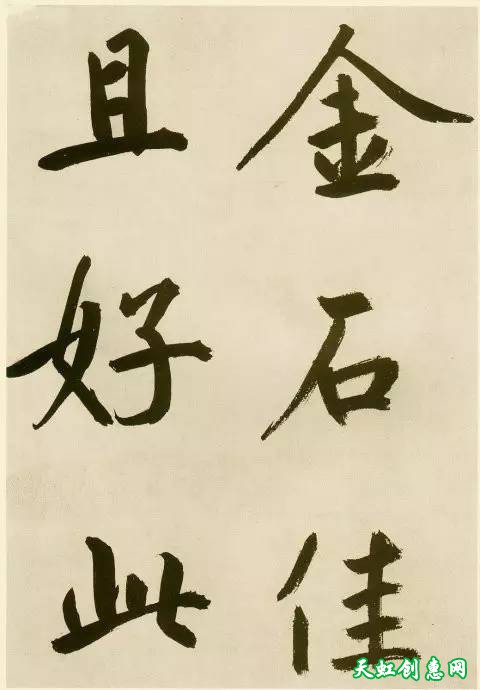 金石佳
且好此
天虹创惠网